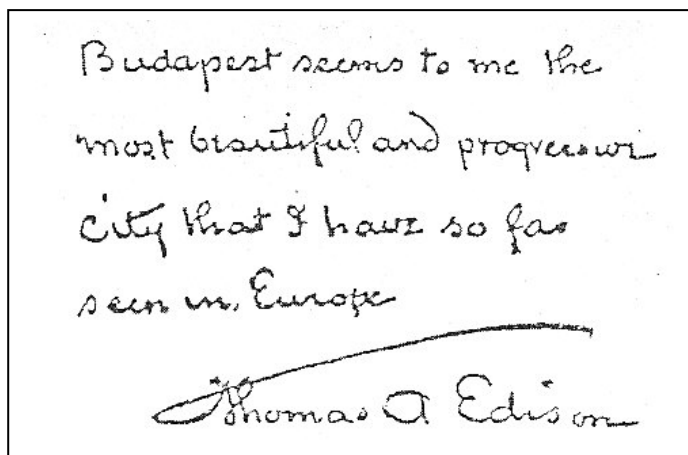 Budapest seems to me the
most beautiful and progressive
city that I have so far
seen in Europe
Thomas A Edison